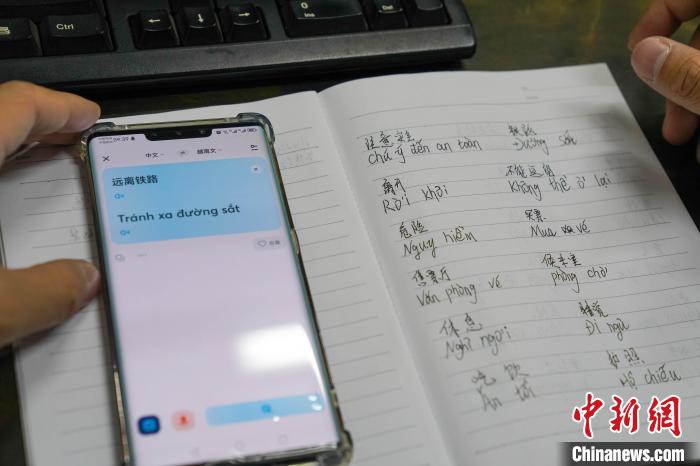 Shift
Ctrl
0
Ins
Del
Enter
08:39
中文
越南文
远离铁路
Tránh xa đường sắt
收藏
注意安全
铁路
chú ý đến an toàn
Đường sắt
离开
不能逗留
Rời khỏi
Không thể ở lại
危险
买票
Nguy hiểm
Mua vé
售票厅
候车室
Văn phòng vé
phòng chờ
休息
睡觉
Nghỉ ngơi
Đi ngủ
吃饭
护照
Ăn tối
Hộ chiếu
中新网
Chinanews.com